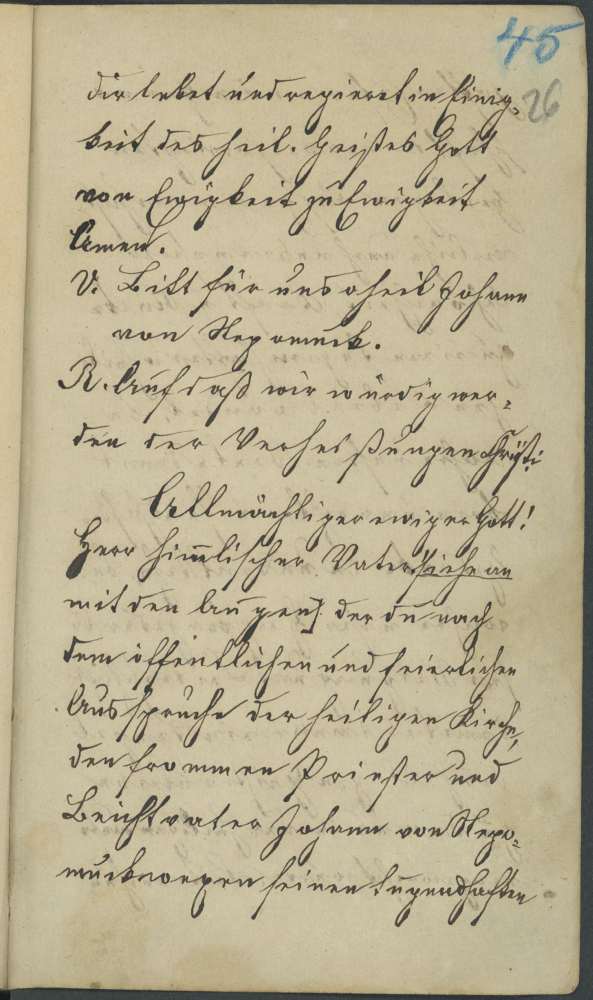 45
26
dir lebet und regieret in Einig-
keit des heil. Geistes Gott
von Ewigkeit zu Ewigkeit
Amen.
V. Bitt für uns o heil Johann
von Nepomuck.
R. Auf daß wir würdig wer-
den der Verheißungen Christi
Allmächtiger ewiger Gott!
Herr himlischer Vater siehe an
mit den Augen] der du nach
dem öffentlichen und feierlichen
Ausspruche der heiligen Kirche,
den frommen Priester und
Beichtvater Johann von Nepo-
muck wegen seinen tugendhaften